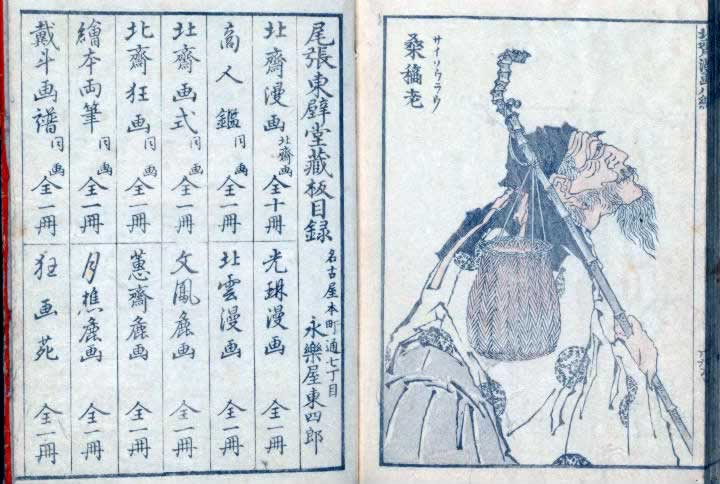 サイソウラウ
桑穐老
尾張東壁堂藏板目録
名古屋本町通七丁目
永樂屋東四郎
北齋漫画 北齋画 全十冊
商人鑑 同画 全一冊
北齋画式 同画 全一冊
北齋狂画 同画 全一冊
繪本両筆 同画 全一冊
戴斗画譜 同画 全一冊
光琳漫画 全一冊
北雲漫画 全一冊
文鳳麁画 全一冊
蕙齋麁画 全一冊
月樵麁画 全一冊
狂画苑 全一冊